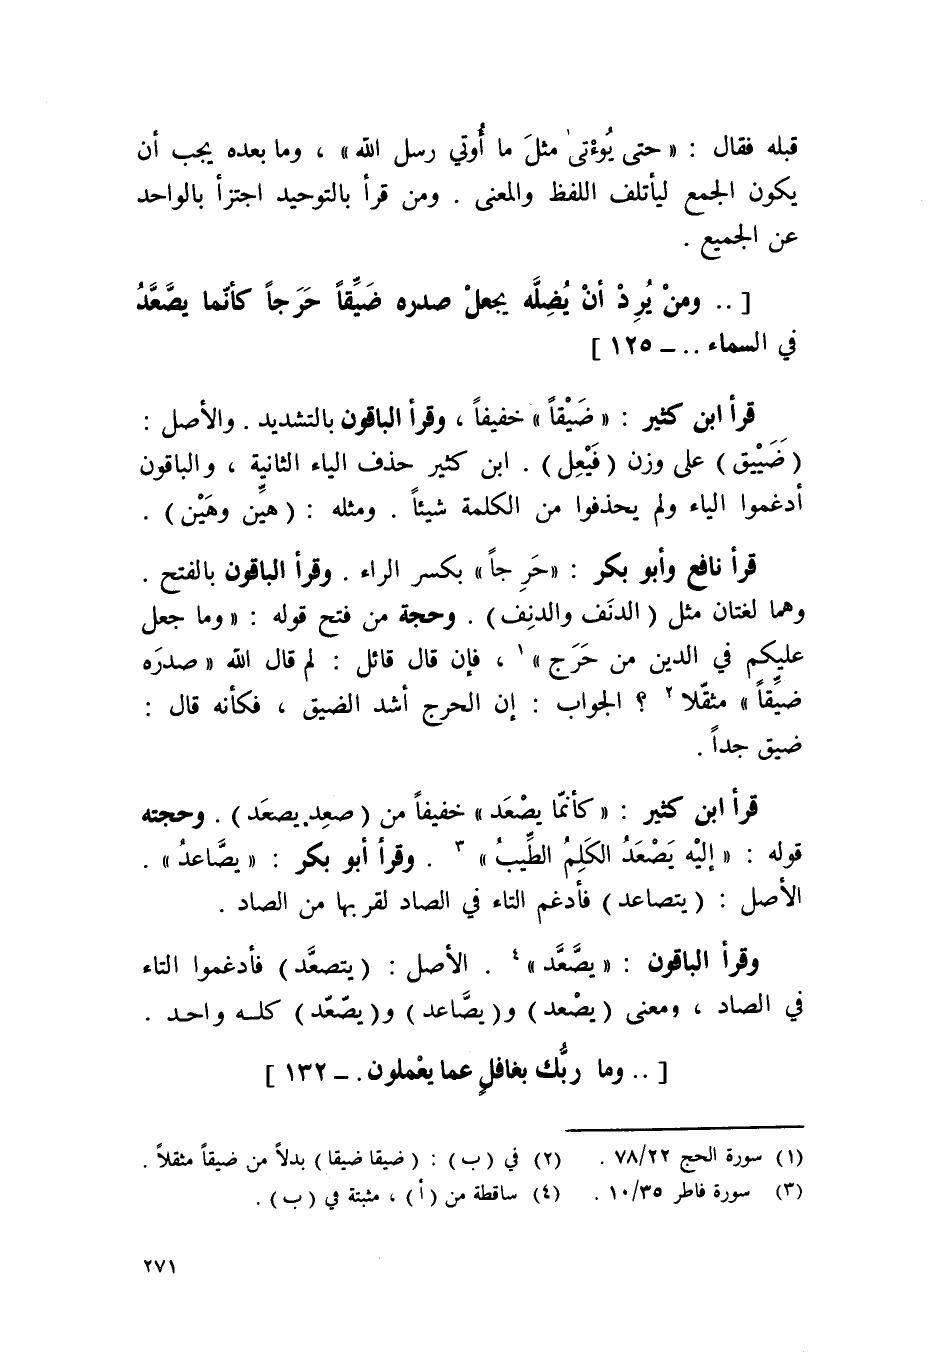 قبله فقال : « حتى يُوءْتىٰ مثلَ ما أُوتي رسل الله » ، وما بعده يجب أن
يكون الجمع ليأتلف اللفظ والمعنى . ومن قرأ بالتوحيد اجتزأ بالواحد
عن الجميع .
[ .. ومنْ يُرِدْ أنْ يُضِلَّه يجعلْ صدره ضَيِّقاً حَرَجاً كأنّما يصَّعَّدُ
في السماء .. ــ ١٢٥ ]
قرأ ابن كثير : « ضَيْقاً » خفيفاً ، وقرأ الباقون بالتشديد . والأصل :
( ضَيْيق ) على وزن ( فَيْعِل ) . ابن كثير حذف الياء الثانية ، والباقون
أدغموا الياء ولم يحذفوا من الكلمة شيئاً . ومثله : ( هيِّن وهَيْن ) .
قرأ نافع وأبو بكر : « حَرِجاً » بكسر الراء . وقرأ الباقون بالفتح .
وهما لغتان مثل ( الدنَف والدنِف ) . وحجة من فتح قوله : « وما جعل
عليكم في الدين من حَرَج » ١ ، فإن قال قائل : لم قال الله « صدرَه
ضيِّقاً » مثقّلا ٢ ؟ الجواب : إن الحرج أشد الضيق ، فكأنه قال :
ضيق جداً .
قرأ ابن كثير : « كأنمّا يصْعَد » خفيفاً من ( صعِد.يصعَد ) . وحجته
قوله : « إليْه يَصْعَدُ الكَلِمُ الطيِّبُ » ٣ . وقرأ أبو بكر : « يصَّاعدُ » .
الأصل : ( يتصاعد ) فأدغم التاء في الصاد لقربها من الصاد .
وقرأ الباقون : « يصَّعَّد » ٤ . الأصل : ( يتصعَّد ) فأدغموا التاء
في الصاد ، ومعنى ( يصْعد ) و( يصَّاعد ) و( يصّعّد ) كلـه واحـد .
[ .. وما ربُّك بغافلٍ عما يعْملون . ــ ١٣٢ ]
(١) سورة الحج ٧٨/٢٢ . (٢) في ( ب ) : ( ضيقا ضيقا ) بدلاً من ضيقاً مثقلاً .
(٣) سورة فاطر ١٠/٣٥ . (٤) ساقطة من ( أ ) ، مثبتة في ( ب ) .
٢٧١